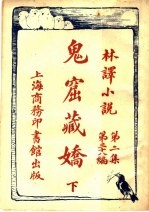 林譯小說
第二集
第三十六編
鬼窟藏嬌
下
上海商務印書館出版